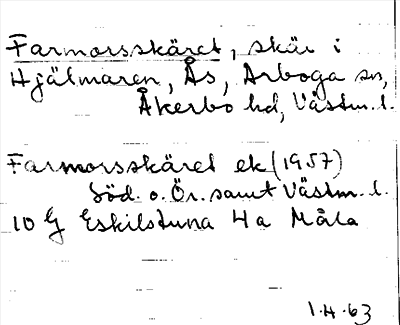 Farmorsskäret, skär i
Hjälmaren, Ås, Arboga sn,
Åkerbo hd, Västm. l.
Farmorsskäret ek (1957)
Söd. o. Ör. samt Västm. l.
10 G Eskilstuna 4a Måla
1.4.63